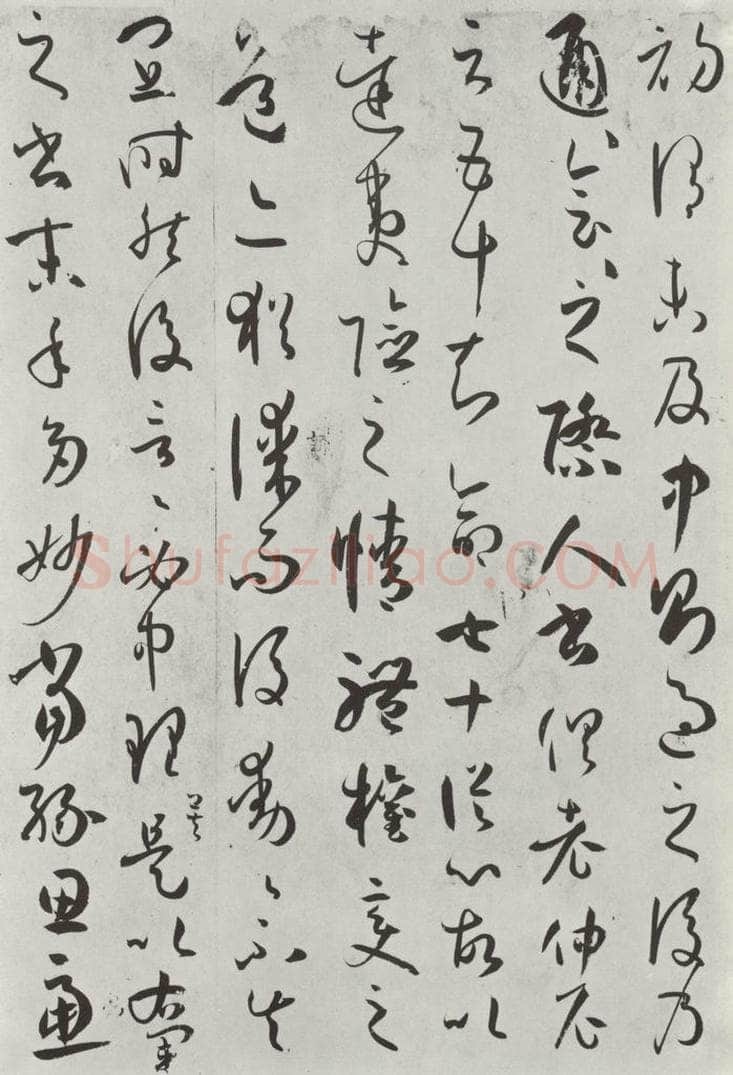 初謂未及中則過之後乃
通〻會〻之際人書俱老仲尼
云五十知命七十從心故以
達夷險之情體權變之
道亦猶謀而後動〻不失
宜時然後言〻必中理矣是以右軍
之書末年多妙當緣思慮
Shufaziliao.COM